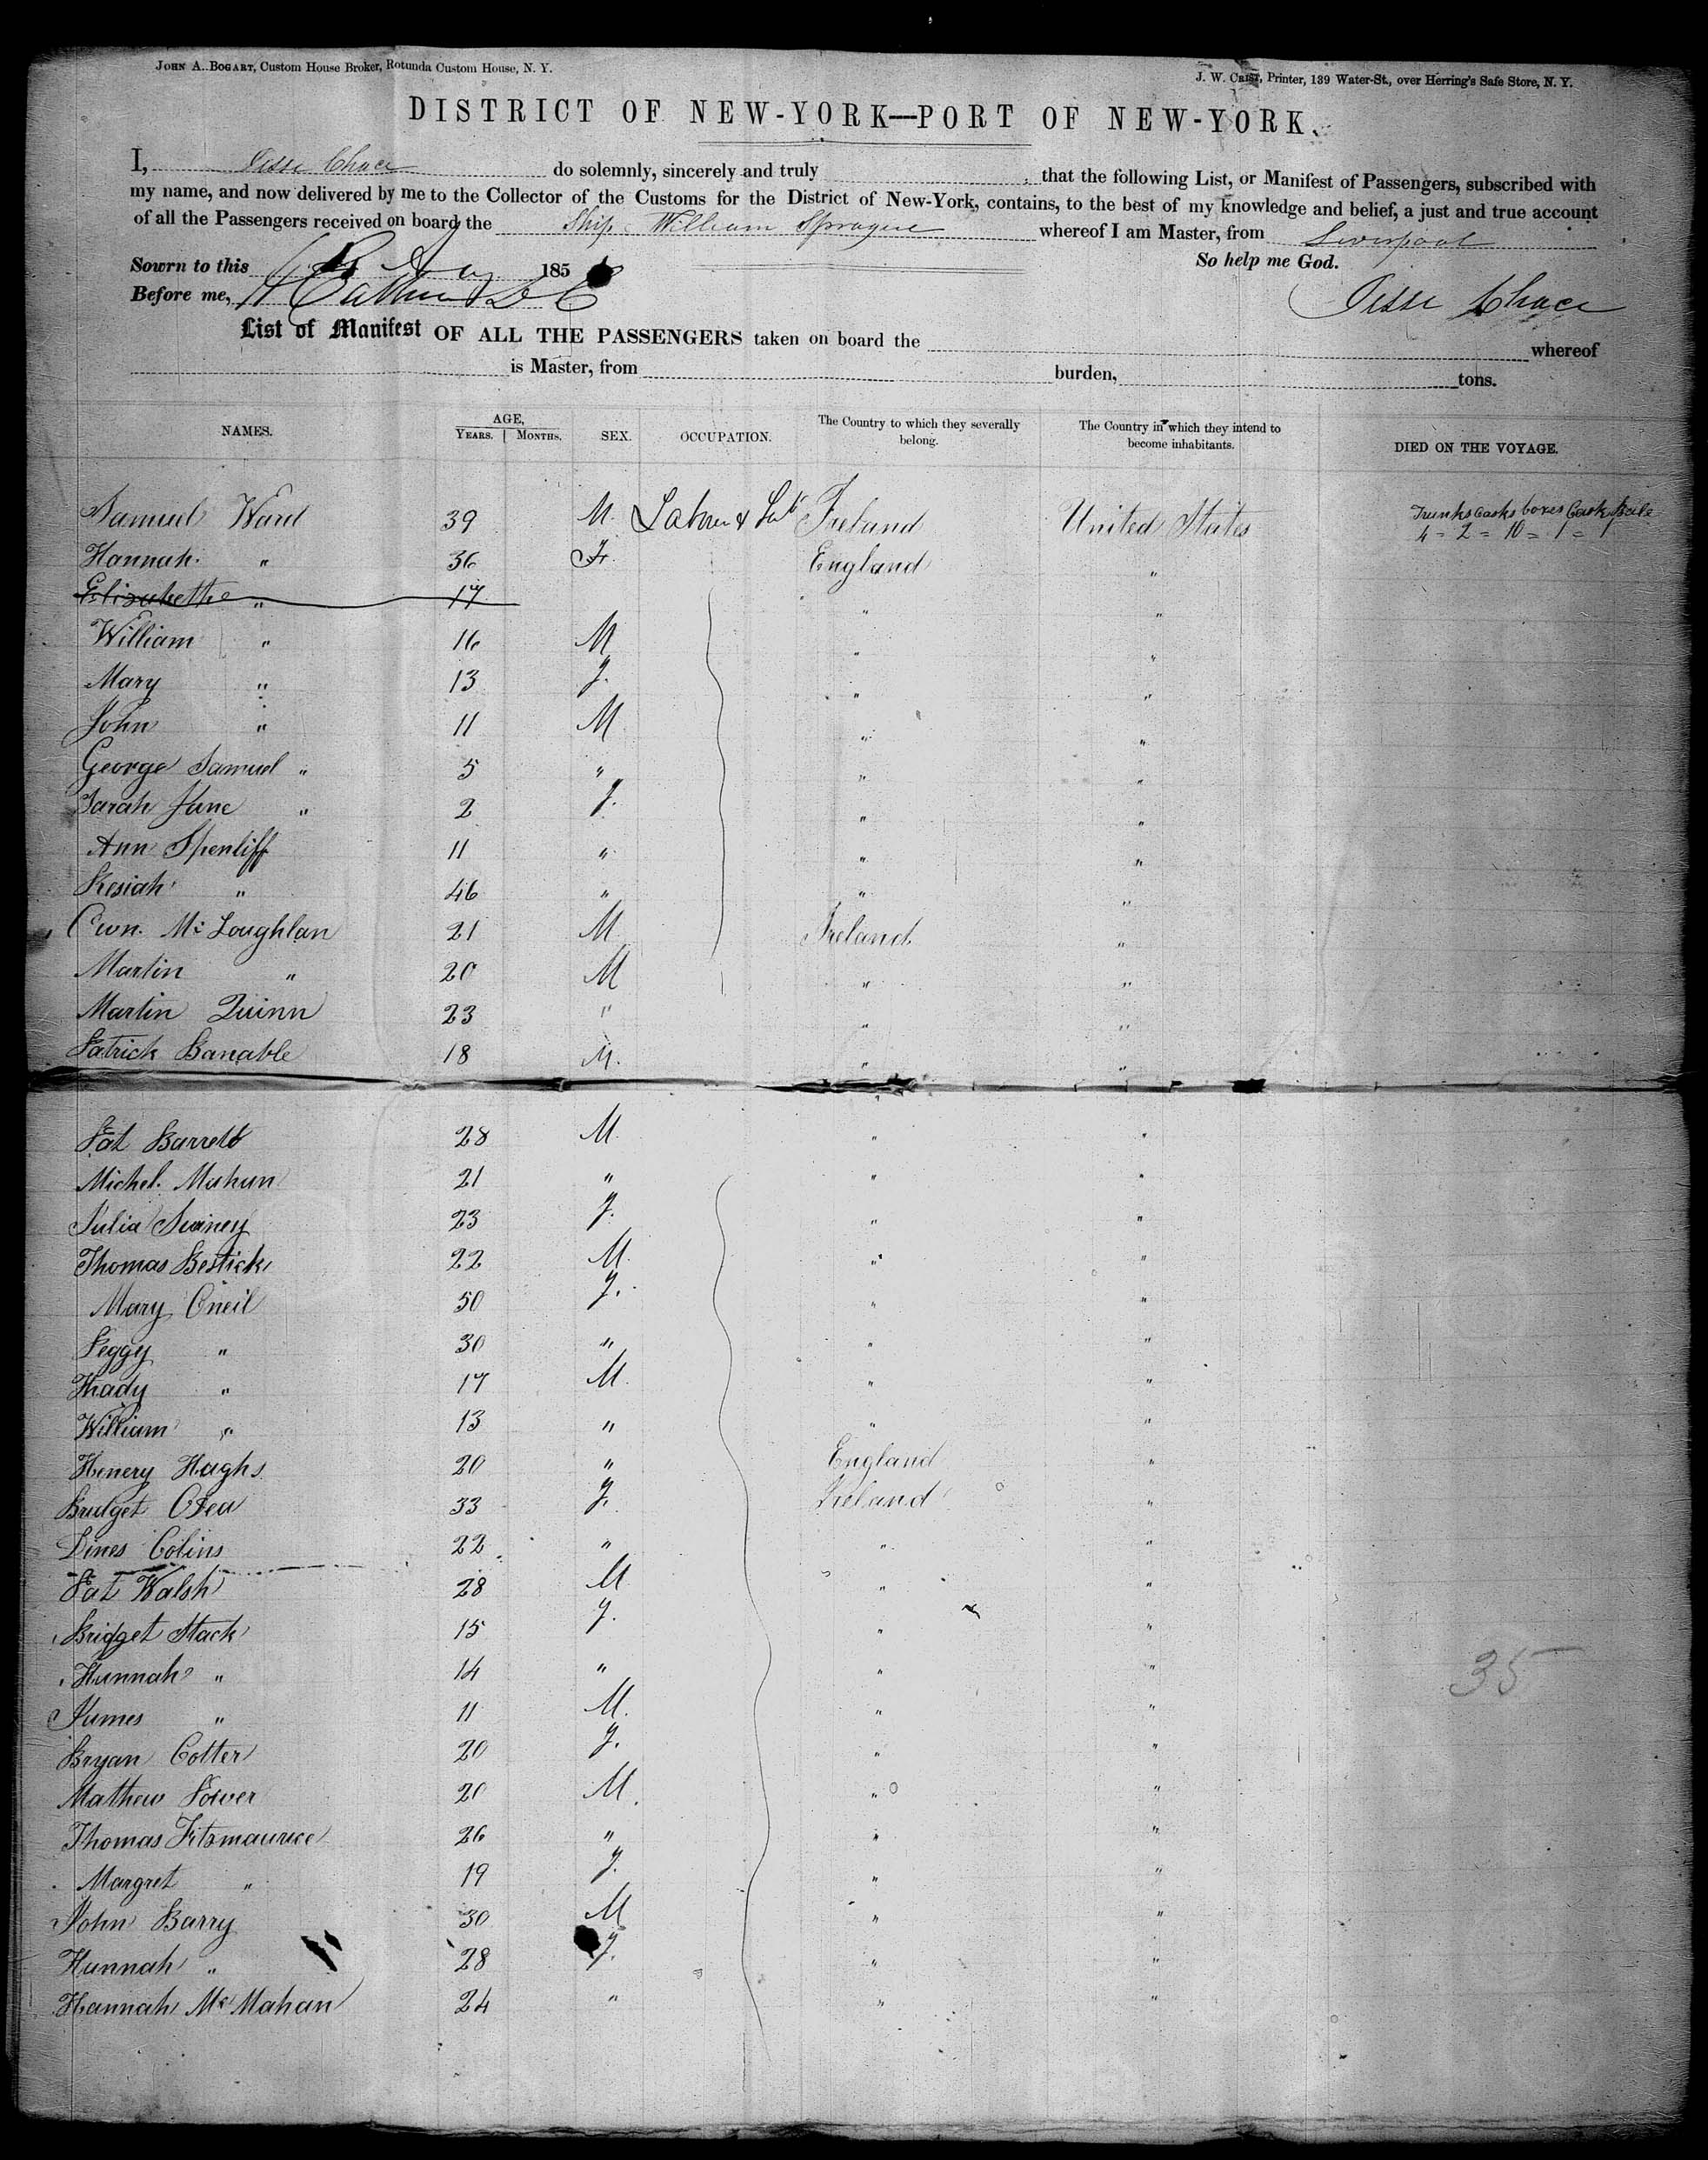 JOHN A. BOGART, Custom House Broker, Rotunda Custom House, N. Y.
J. W. CRIST, Printer, 139 Water-St., over Herring's Safe Store, N. Y.
DISTRICT OF NEW-YORK—PORT OF NEW-YORK.
I, Jesse Chace do solemnly, sincerely and truly , that the following List, or Manifest of Passengers, subscribed with
my name, and now delivered by me to the Collector of the Customs for the District of New-York, contains, to the best of my knowledge and belief, a just and true account
of all the Passengers received on board the Ship William Sprague whereof I am Master, from Liverpool
Sowrn to this 185
So help me God.
Before me,
Jesse Chace
List of Manifest OF ALL THE PASSENGERS taken on board the whereof
is Master, from burden, tons.
NAMES. AGE, YEARS. MONTHS. SEX. OCCUPATION. The Country to which they severally belong. The Country in which they intend to become inhabitants. DIED ON THE VOYAGE.
Samuel Ward 39 M. Ireland United States Trunks Casks boxes Cask Bale
4 = 2 = 10 = 1 = 1
Hannah " 36 F. England "
Elizabeth " 17 " "
William " 16 M " "
Mary " 13 F. " "
John " 11 M " "
George Samuel " 5 " " "
Sarah Jane " 2 F. " "
Ann Spenliff 11 " " "
Kesiah " 46 " " "
Own. Mc Loughlan 21 M Ireland "
Martin " 20 M " "
Martin Quinn 23 " " "
Patrick Banable 18 M. " "
Pat Barrett 28 M. " "
Michel. Mahan 21 " " "
Julia Swiney 23 F. " "
Thomas Bestick 22 M. " "
Mary Oneil 50 F. " "
Peggy " 30 " " "
Thady " 17 M. " "
William " 13 " " "
Henery Haghs 20 " England "
Bridget OFea 33 F. Ireland "
Dines Colins 22 " " "
Pat Walsh 28 M " "
Bridget Stack 15 F. " "
Hannah " 14 " " "
35
James " 11 M. " "
Bryan Cotter 20 F. " "
Mathew Power 20 M. " "
Thomas Fitzmaurice 26 " " "
Margret " 19 F. " "
John Barry 30 M " "
Hannah " 28 F. " "
Hannah Mc Mahan 24 " " "